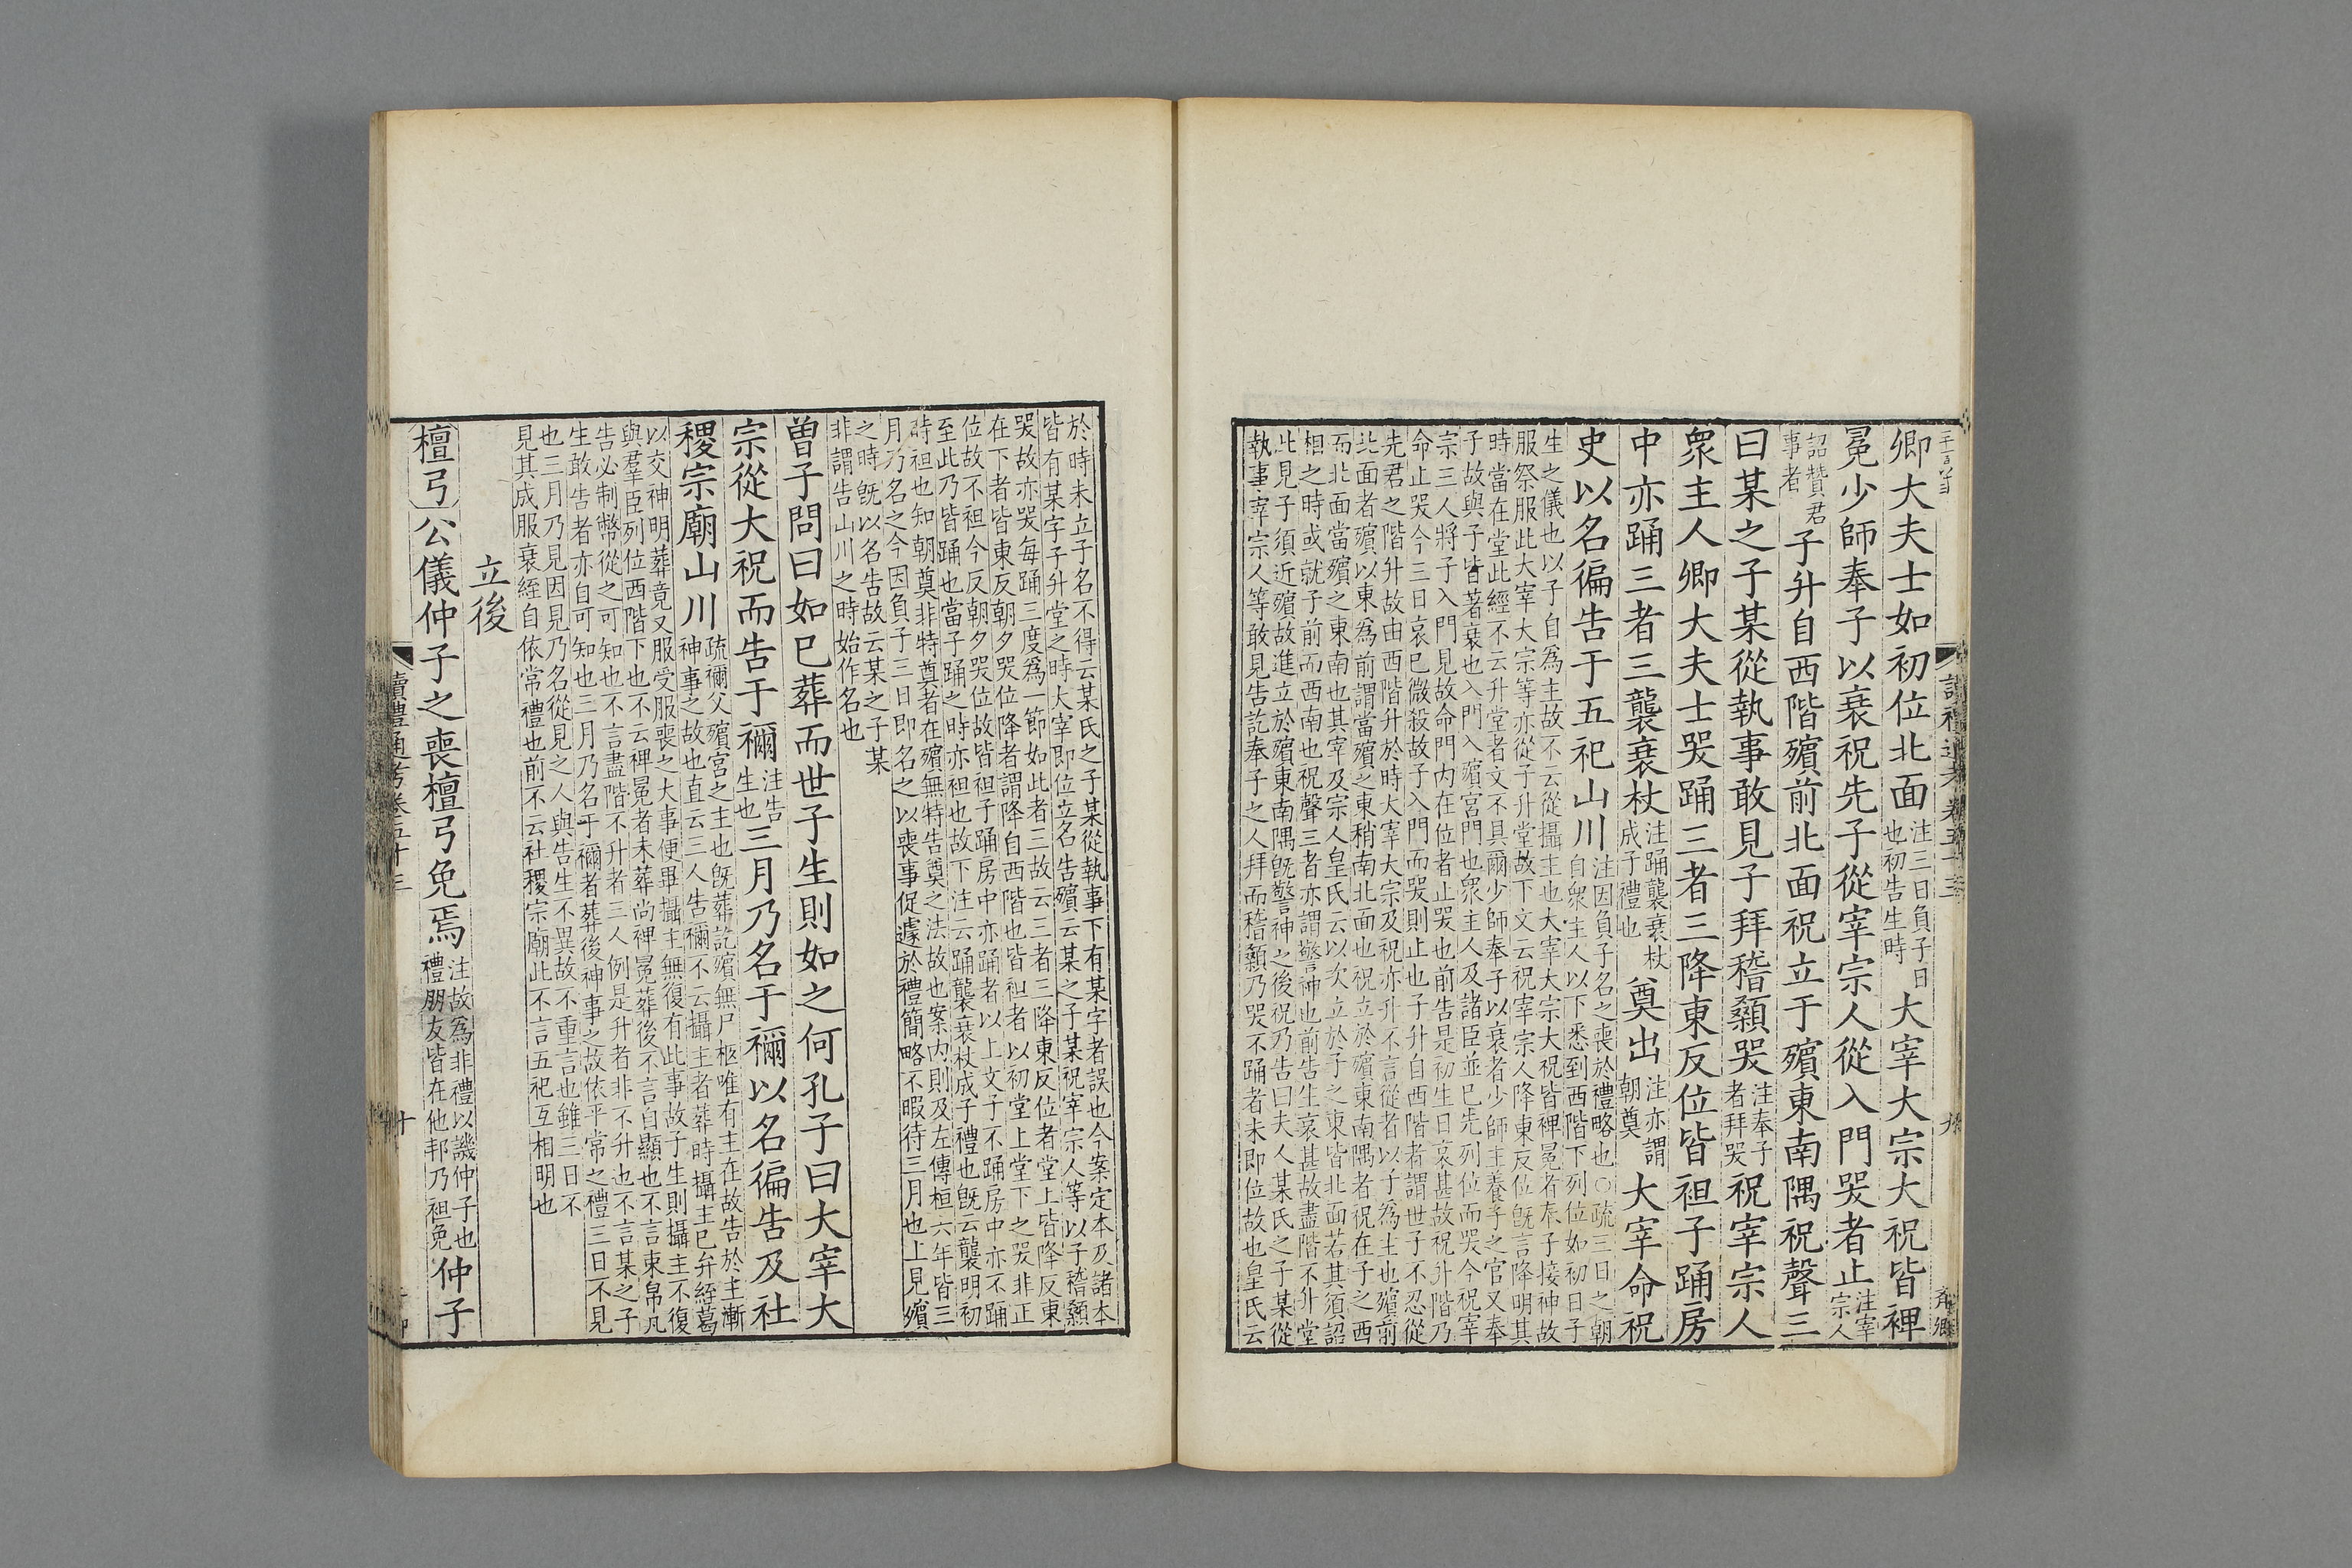 卿大夫士如初位北面注三日負子日也初告生時大宰大宗大祝皆裨
冕少師奉子以衰祝先子從宰宗人從入門哭者止注宰宗人
詔贊君事者子升自西階殯前北面祝立于殯東南隅祝聲三
曰某之子某從執事敢見子拜稽顙哭注奉子者拜哭祝宰宗人
衆主人卿大夫士哭踊三者三降東反位皆袒子踊房
中亦踊三者三襲衰杖注踊襲衰杖成子禮也奠出注亦謂朝奠大宰命祝
史以名徧告于五祀山川注因負子名之喪於禮略也○疏三日之朝自衆主人以下悉到西階下列位如初日子
生之儀也以子自為主故不云從攝主也大宰大宗大祝皆裨冕者奉子接神故
服祭服此大宰大宗等亦從子升堂故下文云祝宰宗人降東反位旣言降明其
時當在堂此經不云升堂者文不具爾少師奉子以衰者少師主養子之官又奉
子故與子皆著衰也入門入殯宮門也衆主人及諸臣並已先列位而哭今祝宰
宗三人將子入門見故命門內在位者止哭也前告是初生日哀甚故祝升階乃
命止哭今三日哀已微殺故子入門而哭則止也子升自西階者謂世子不忍從
先君之階升故由西階升於時大宰大宗及祝亦升不言從者以子為主也殯前
北面者殯以東為前謂當殯之東稍南北面也祝立於殯東南隅者祝在子之西
而北面當殯之東南也其宰及宗人皇氏云以次立於子之東皆北面若其須詔
相之時或就子前而西南也祝聲三者亦謂警神也前告生哀甚故盡階不升堂
此見子須近殯故進立於殯東南隅旣警神之後祝乃告曰夫人某氏之子某從
執事宰宗人等敢見告訖奉子之人拜而稽顙乃哭不踊者未即位故也皇氏云
於時未立子名不得云某氏之子某從執事下有某字者誤也今案定本及諸本
皆有某字子升堂之時大宰即位立名告殯云某之子某祝宰宗人等以子稽顙
哭故亦哭每踊三度為一節如此者三故云三者三降東反位者堂上皆降反東
在下者皆東反朝夕哭位降者謂降自西階也皆袒者以初堂上堂下之哭非正
位故不袒今反朝夕哭位故皆袒子踊房中亦踊者以上文子不踊房中亦不踊
至此乃皆踊也當子踊之時亦袒也故下注云踊襲衰杖成子禮也旣云襲明初
時袒也知朝奠非特奠者在殯無特告奠之法故也案內則及左傳桓六年皆三
月乃名之今因負子三日即名之以喪事促遽於禮簡略不暇待三月也上見殯
之時旣以名告故云某之子某
非謂告山川之時始作名也
曾子問曰如已葬而世子生則如之何孔子曰大宰大
宗從大祝而告于禰注告生也三月乃名于禰以名徧告及社
稷宗廟山川疏禰父殯宮之主也旣葬訖殯無尸柩唯有主在故告於主漸神事之故也直云三人告禰不云攝主者葬時攝主已弁絰葛
以交神明葬竟又服受服喪之大事便畢攝主無復有此事故子生則攝主不復
與羣臣列位西階下也不云裨冕者未葬尚裨冕葬後不言自顯也不言東帛凡
告必制幣從之可知也不言盡階不升者三人例是升者非不升也不言某之子
生敢告者亦自可知也三月乃名于禰者葬後神事之故依平常之禮三日不見
也三月乃見因見乃名從見之人與告生不異故不重言也雖三日不
見其成服衰絰自依常禮也前不云社稷宗廟此不言五祀互相明也
立後
檀弓公儀仲子之喪檀弓免焉注故為非禮以譏仲子也禮朋友皆在他邦乃袒免仲子
讀禮通考卷五十三
十